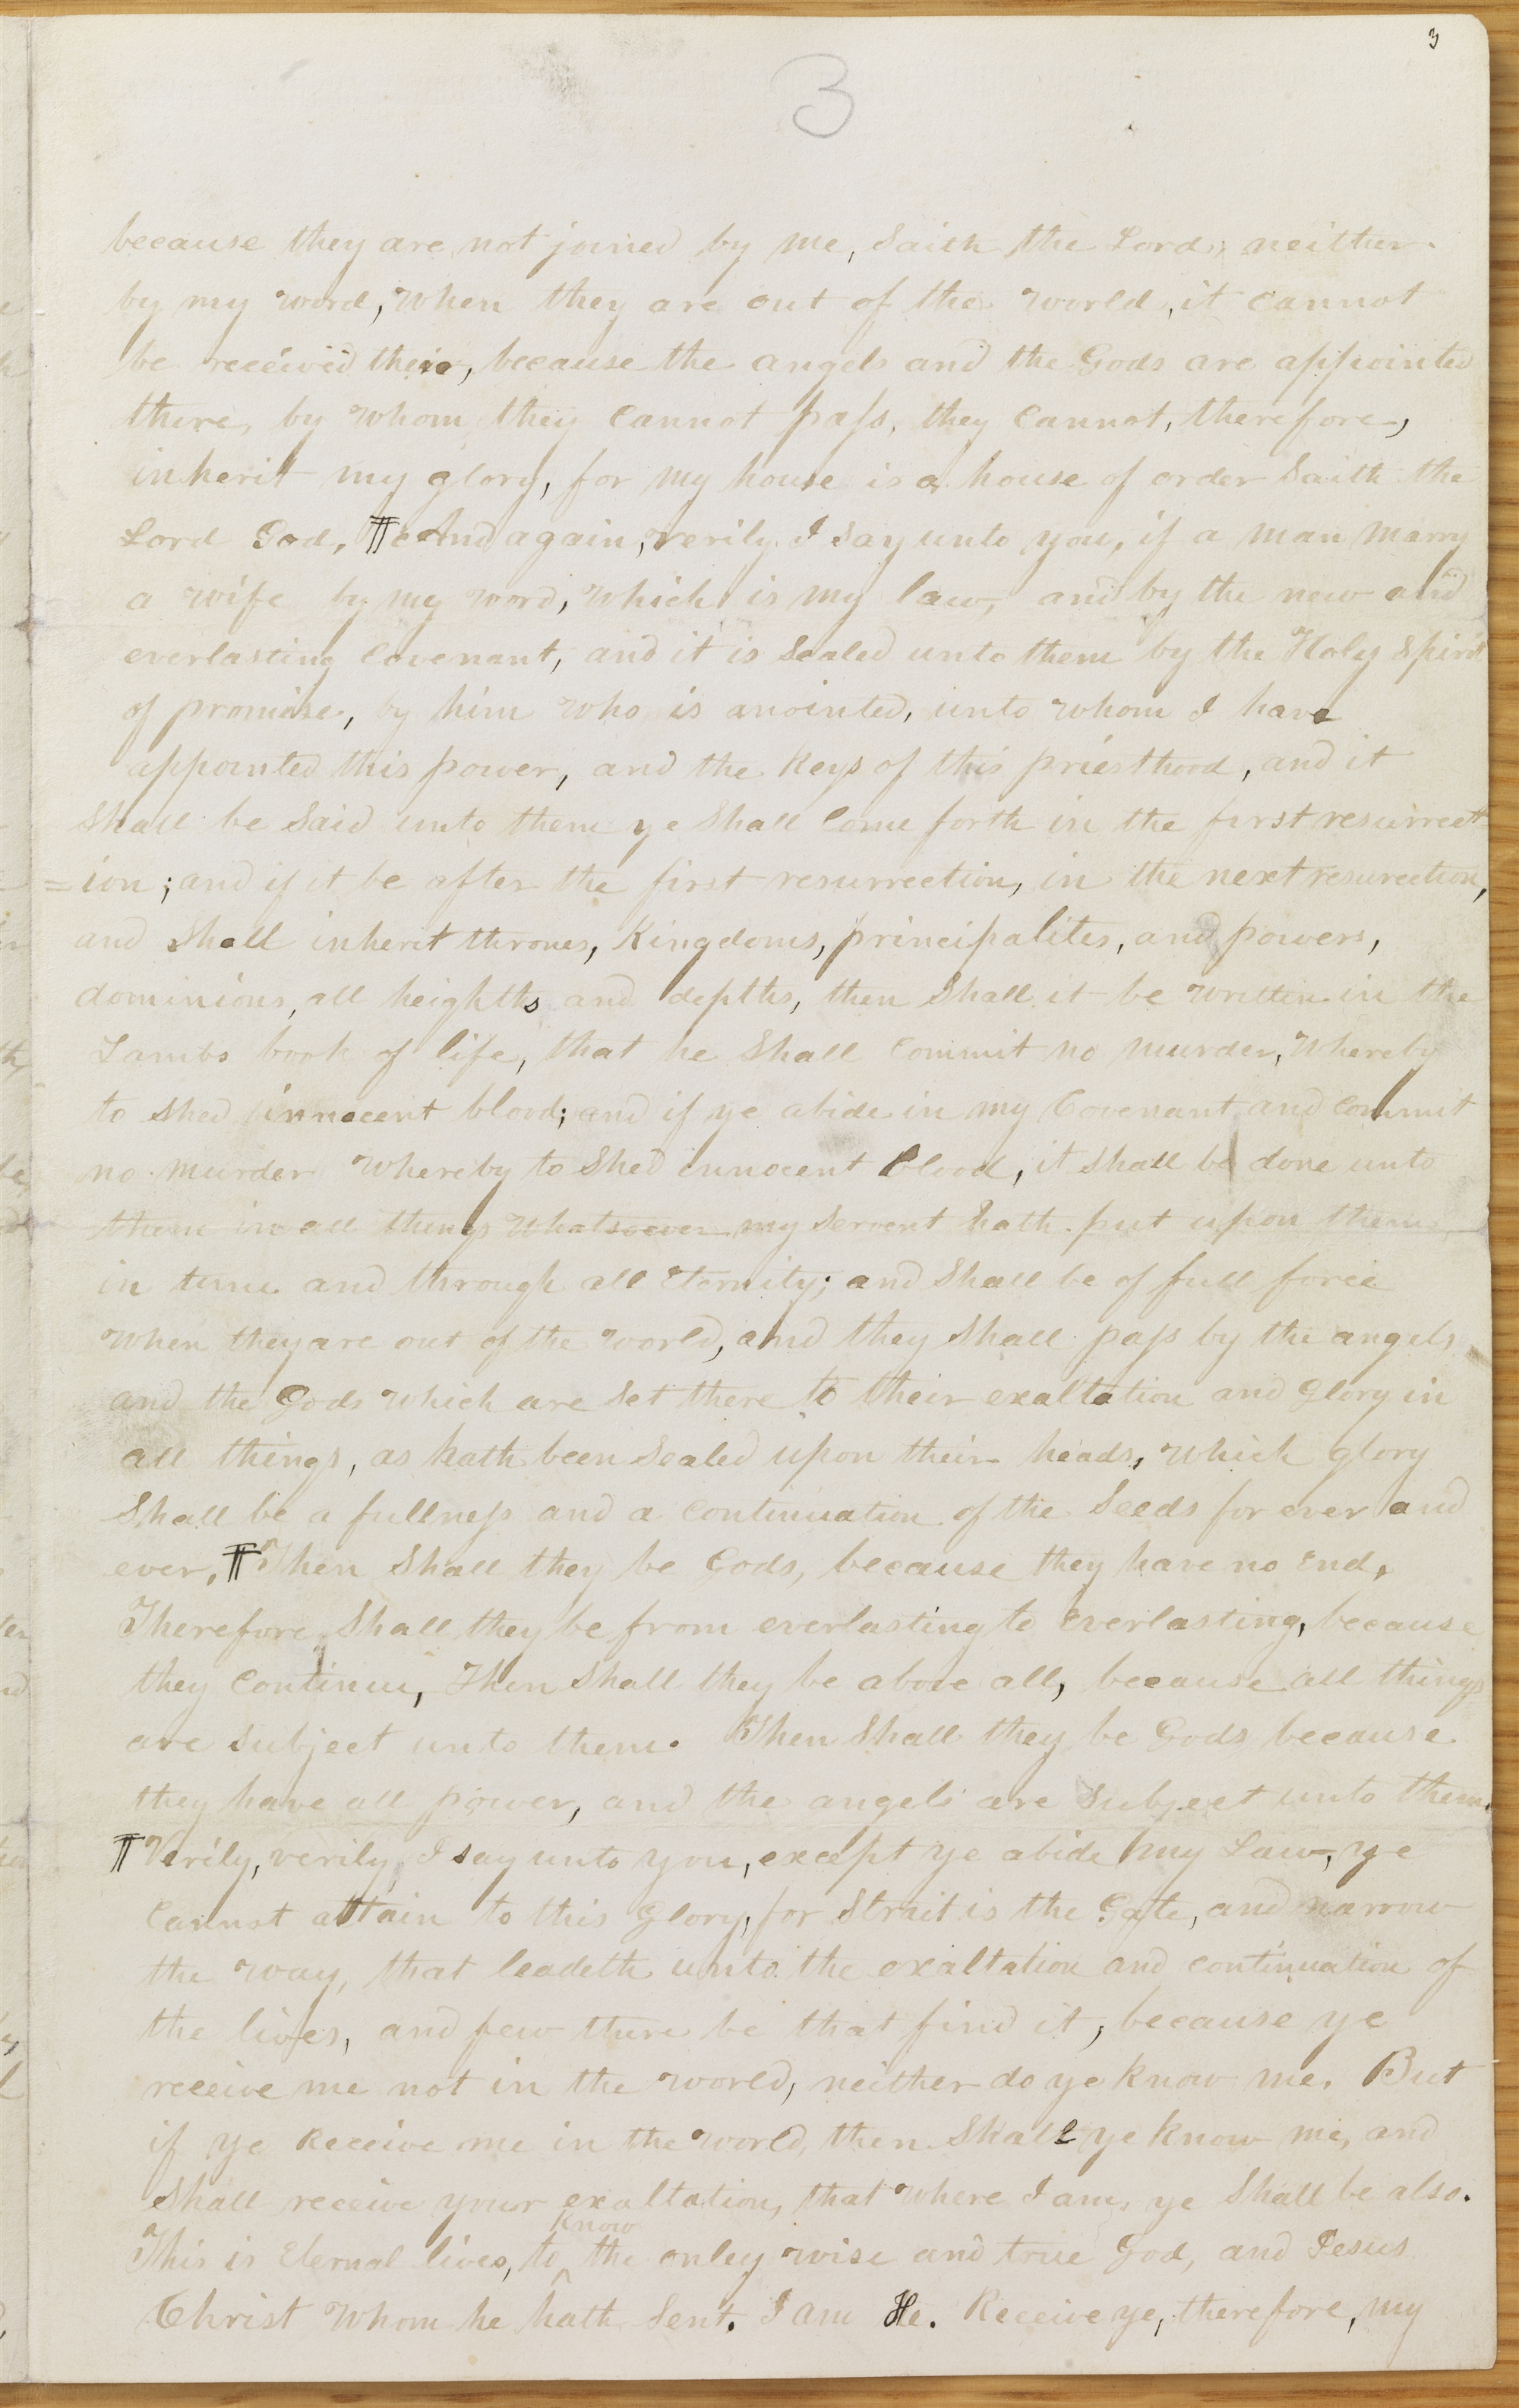 3
3
because they are not joined by me, Saith the Lord, neither
by my word, when they are out of the world, it cannot
be received there, because the angels and the Gods are appointed
there, by whom they cannot pass, they cannot, therefore,
inherit my glory, for my house is a house of order Saith the
Lord God, ¶ And again, verily I say unto you, if a man marry
a wife by my word, which is my law, and by the new and
everlasting Covenant, and it is Sealed unto them by the Holy Spirit
of promise, by him who is anointed, unto whom I have
appointed this power, and the keys of this priesthood, and it
Shall be Said unto them ye Shall Come forth in the first resurrect
=ion; and if it be after the first resurrection, in the next resurection,
and Shall inherit thrones, Kingdoms, principalites, and powers,
dominions, all heighths and depths, then Shall it be written in the
Lambs book of life, that he Shall Commit no murder, whereby
to shed innocent blood; and if ye abide in my Covenant and commit
no murder whereby to Shed innocent blood, it shall be done unto
them in all things whatsoever my Servent hath put upon them
in time and through all Eternity; and Shall be of full force
when they are out of the world, and they Shall pass by the angels
and the Gods which are Set there to their exaltation and Glory in
all things, as hath been Sealed upon their heads, which glory
Shall be a fullness and a Continuation of the Seeds for ever and
ever, ¶ Then Shall they be Gods, because they have no End,
Therefore Shall they be from everlasting to Everlasting, because
they Continue, Then Shall they be above all, because all things
are Subject unto them. Then Shall they be Gods because
they have all power, and the angels are Subject unto them.
¶ Verily, verily I say unto you, except ye abide my Law, ye
Cannot attain to this Glory, for Strait is the Gate, and narrow
the way, that leadeth unto the exaltation and continuation of
the lives, and few there be that find it, because ye
receive me not in the world, neither do ye know me. But
if ye Receive me in the world, then Shall ye know me, and
Shall receive your exaltation, that where I am, ye Shall be also.
know
This is Eternal lives, to ^ the onley wise and true God, and Jesus
Christ whom he hath Sent. I am He. Receive ye, therefore, my